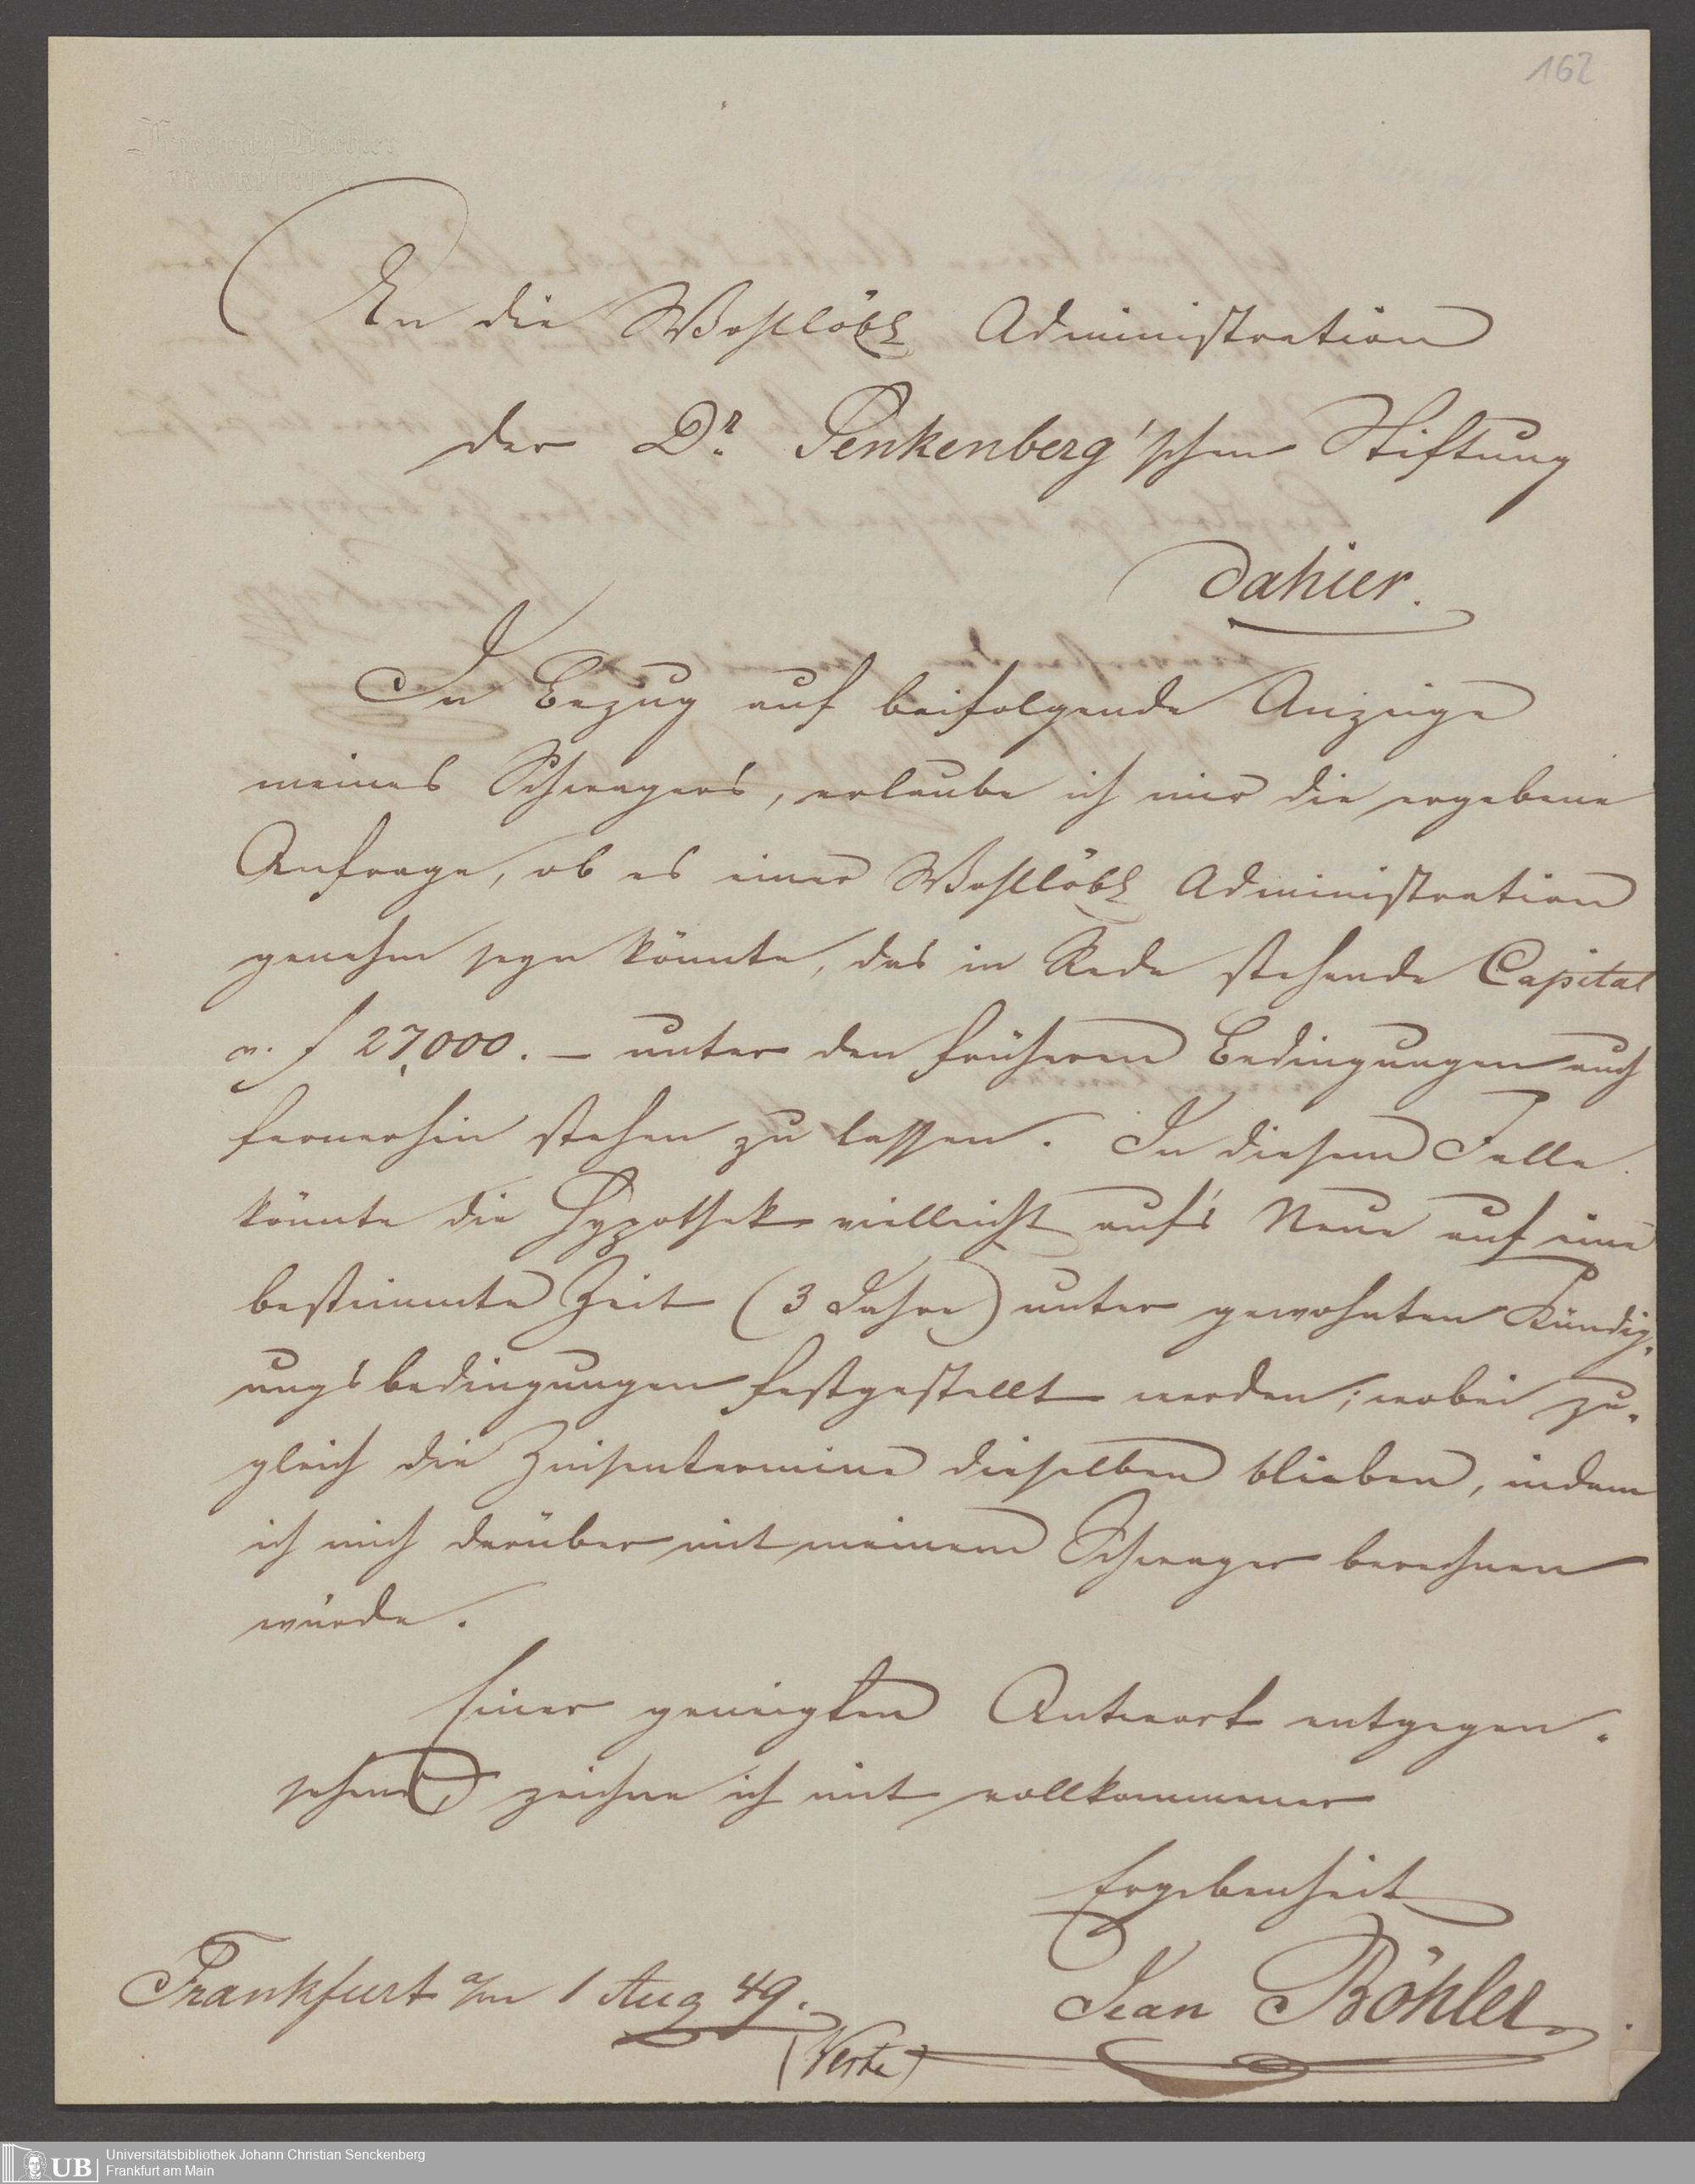 162
An die Wohllöbl Administration
der Dr. Senkenberg'schen Stiftung
dahier.
In Bezug auf beifolgende Anzeige
meines Schwagers, erlaube ich mir die ergebene
Anfrage, ob es einer Wohllöbl Administration
genehm seyn könnte, das in Rede stehende Capital
v. f 27,000. — unter den früheren Bedingungen auch
fernerhin stehen zu lassen. In diesem Falle
könnte die Hypothek vielleicht auf's Neue auf eine
bestimmte Zeit (3 Jahre) unter gewohnten Kündig-
ungsbedingungen festgestellt werden; wobei zu-
gleich die Zinsentermine dieselben blieben, indem
ich mich darüber mit meinem Schwager berechnen
würde.
Einer geneigten Antwort entgegen-
sehend, zeichne ich mit vollkommener
Ergebenheit
Jean Böhler
Frankfurt a/m 1 Aug 49.
(Verte)
UB Universitätsbibliothek Johann Christian Senckenberg
Frankfurt am Main